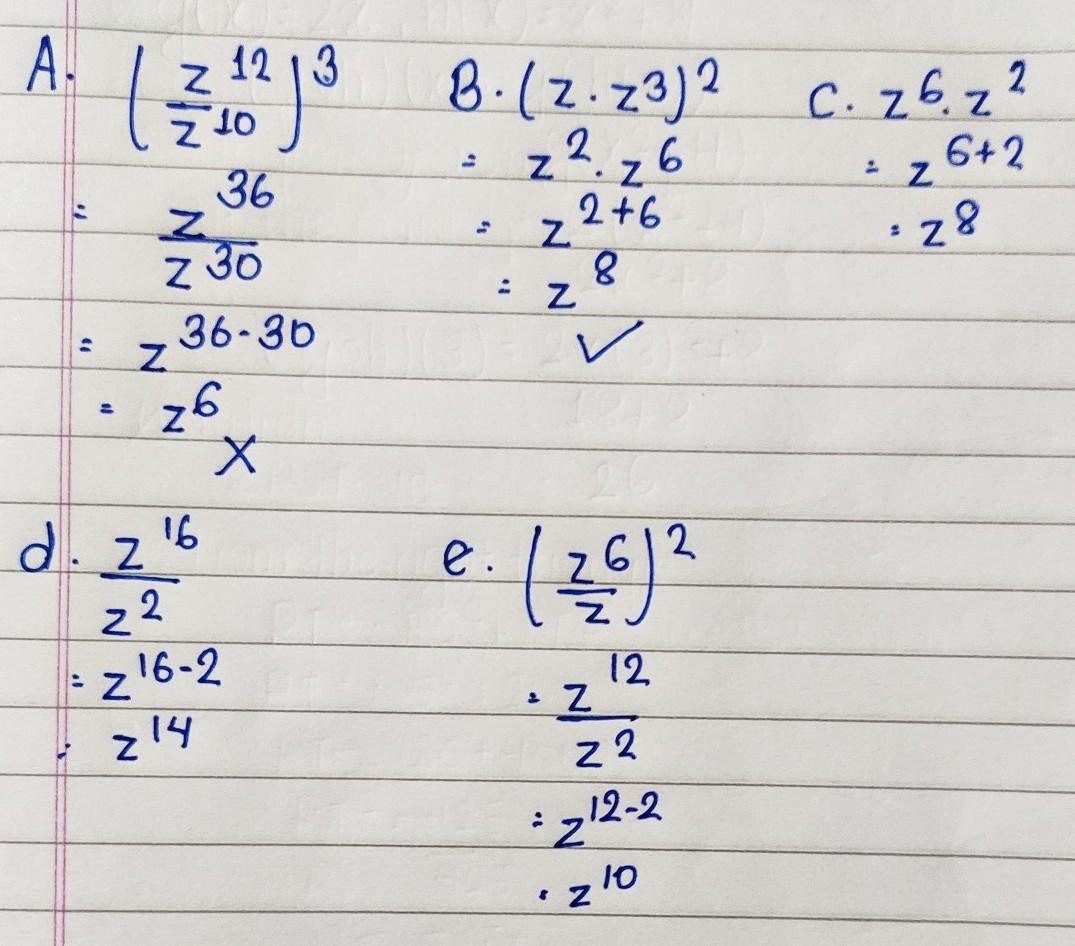 A. (z^12/z^10)^3
= z^36/z^30
= z^36-30
= z^6
X
B. (z . z^3)^2
= z^2 . z^6
= z^2+6
= z^8
✓
C. z^6 . z^2
= z^6+2
= z^8
d. z^16/z^2
= z^16-2
= z^14
e. (z^6/z)^2
= z^12/z^2
= z^12-2
= z^10